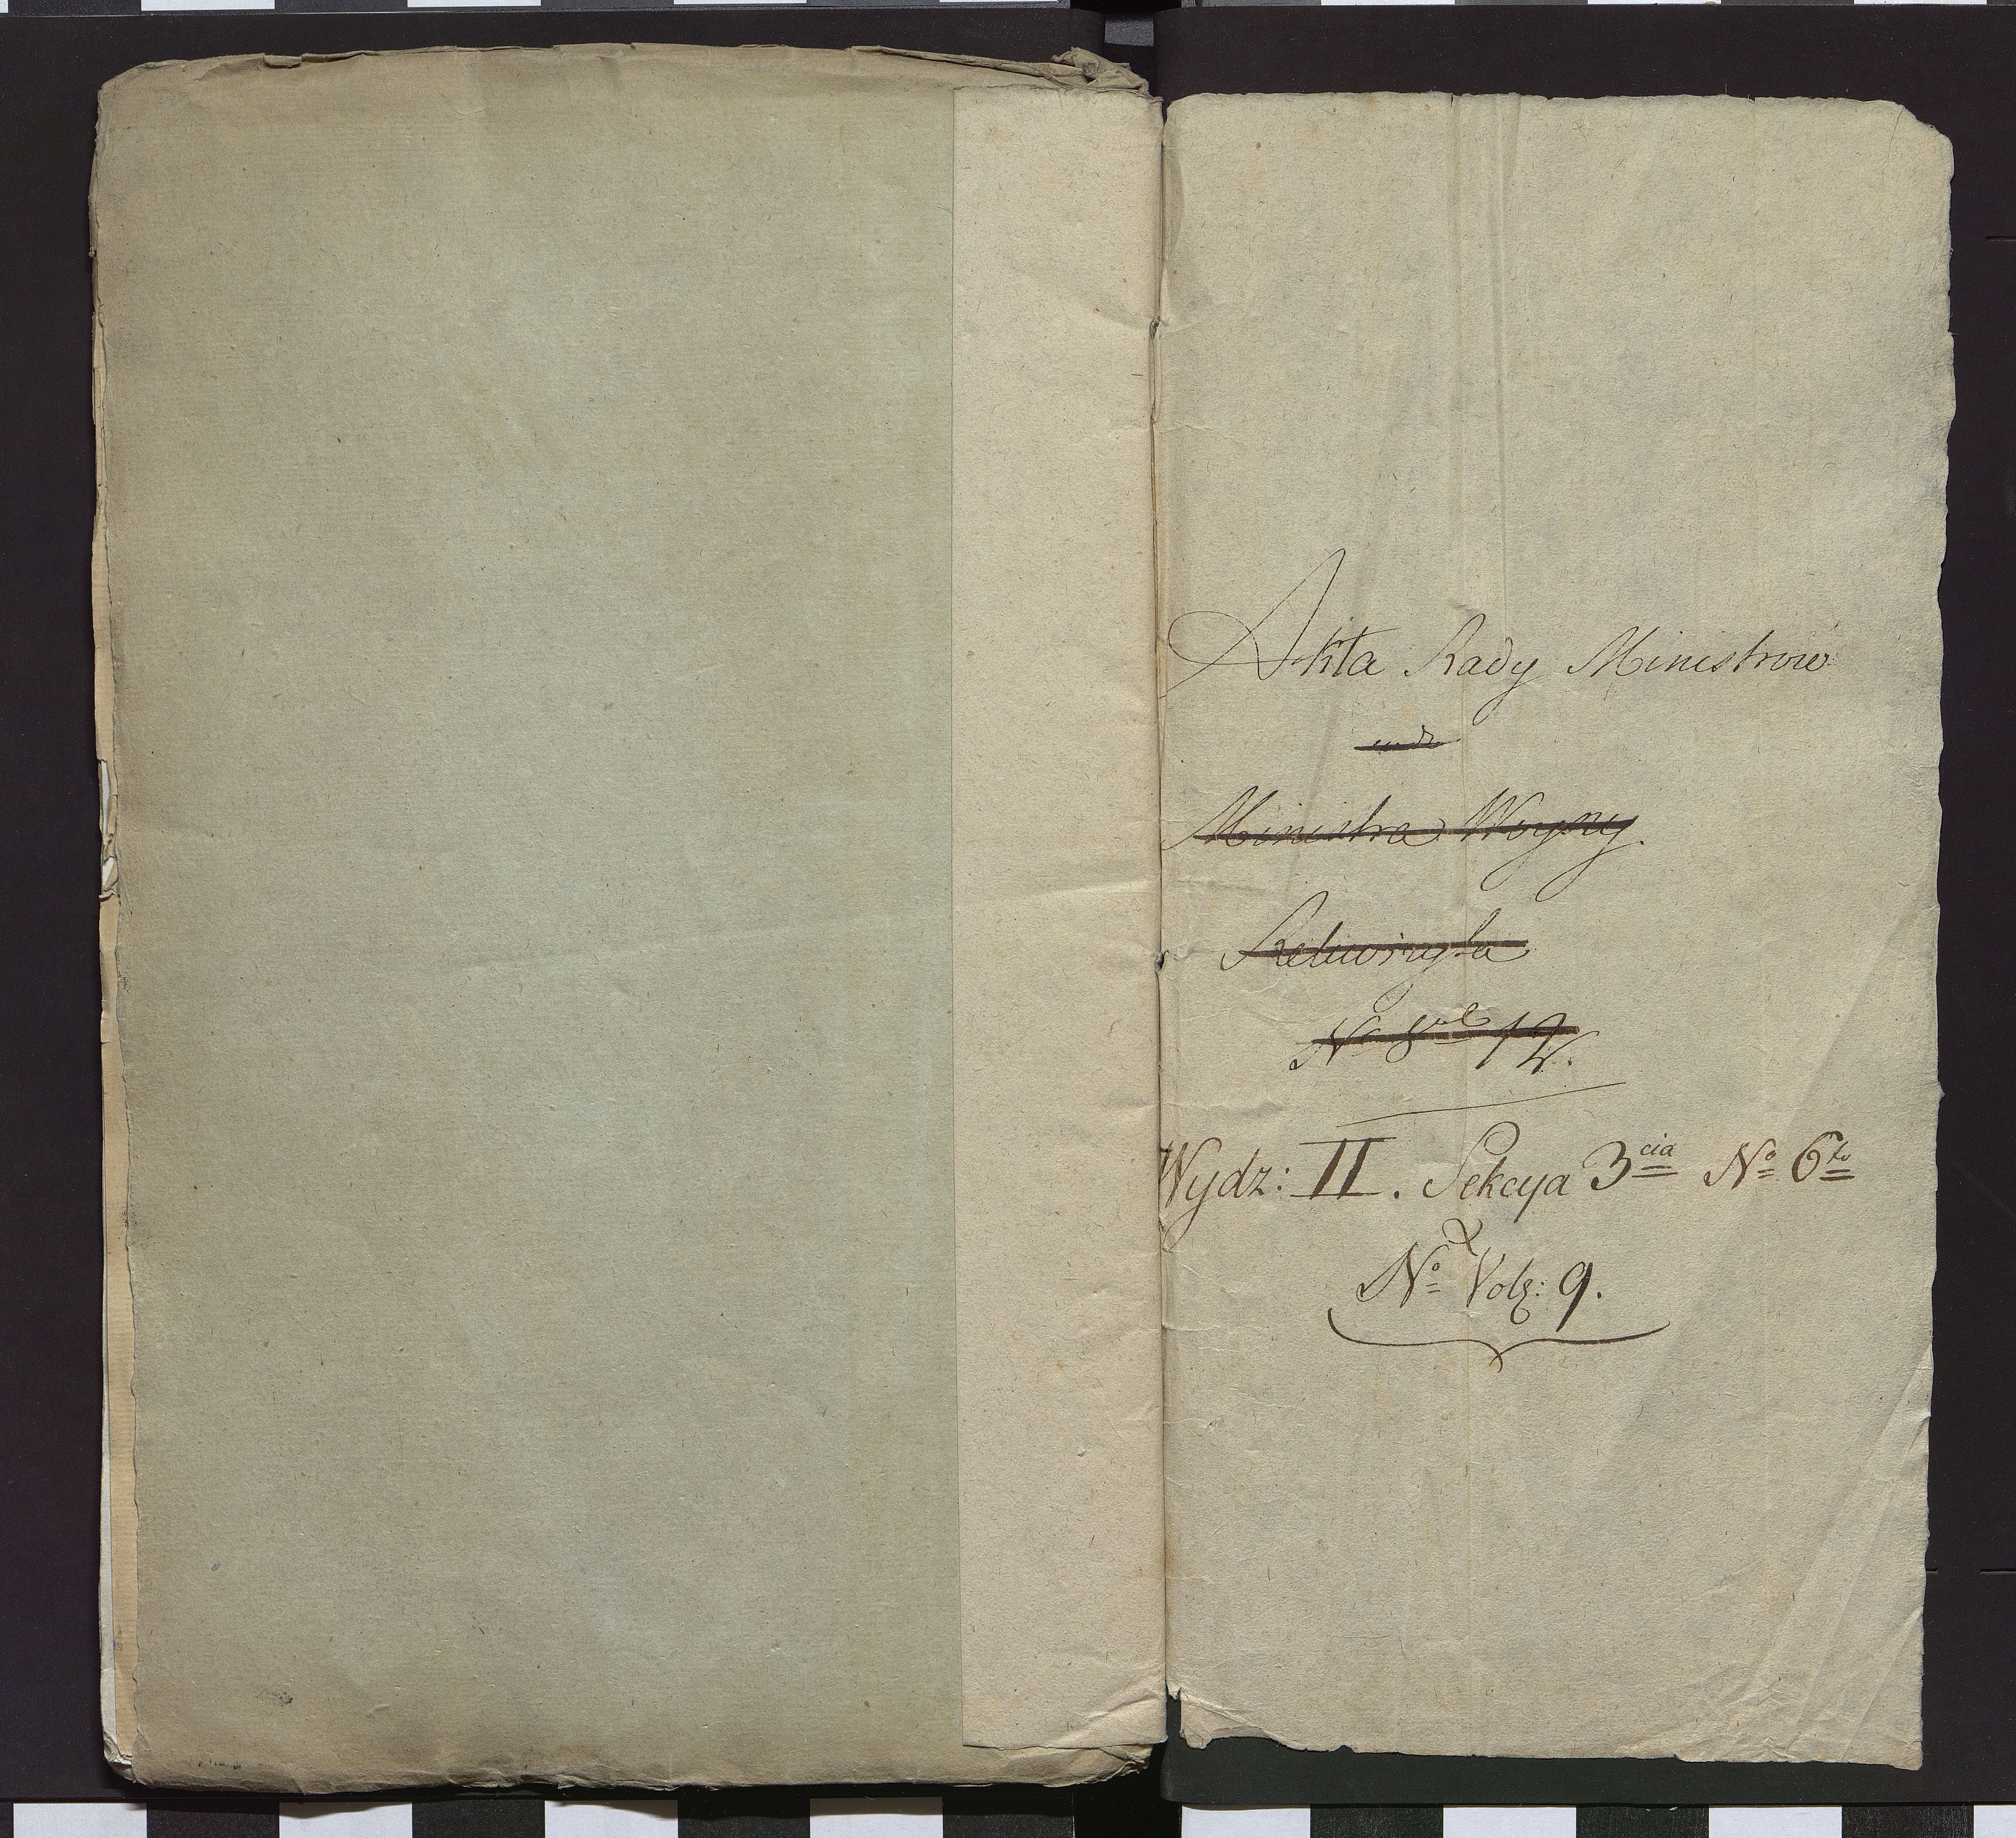 Akta Rady Ministrow
Ministra Woyny.
No 12.
Wydz: II. Sekcya 3cia No 6to
No Vol: 9.